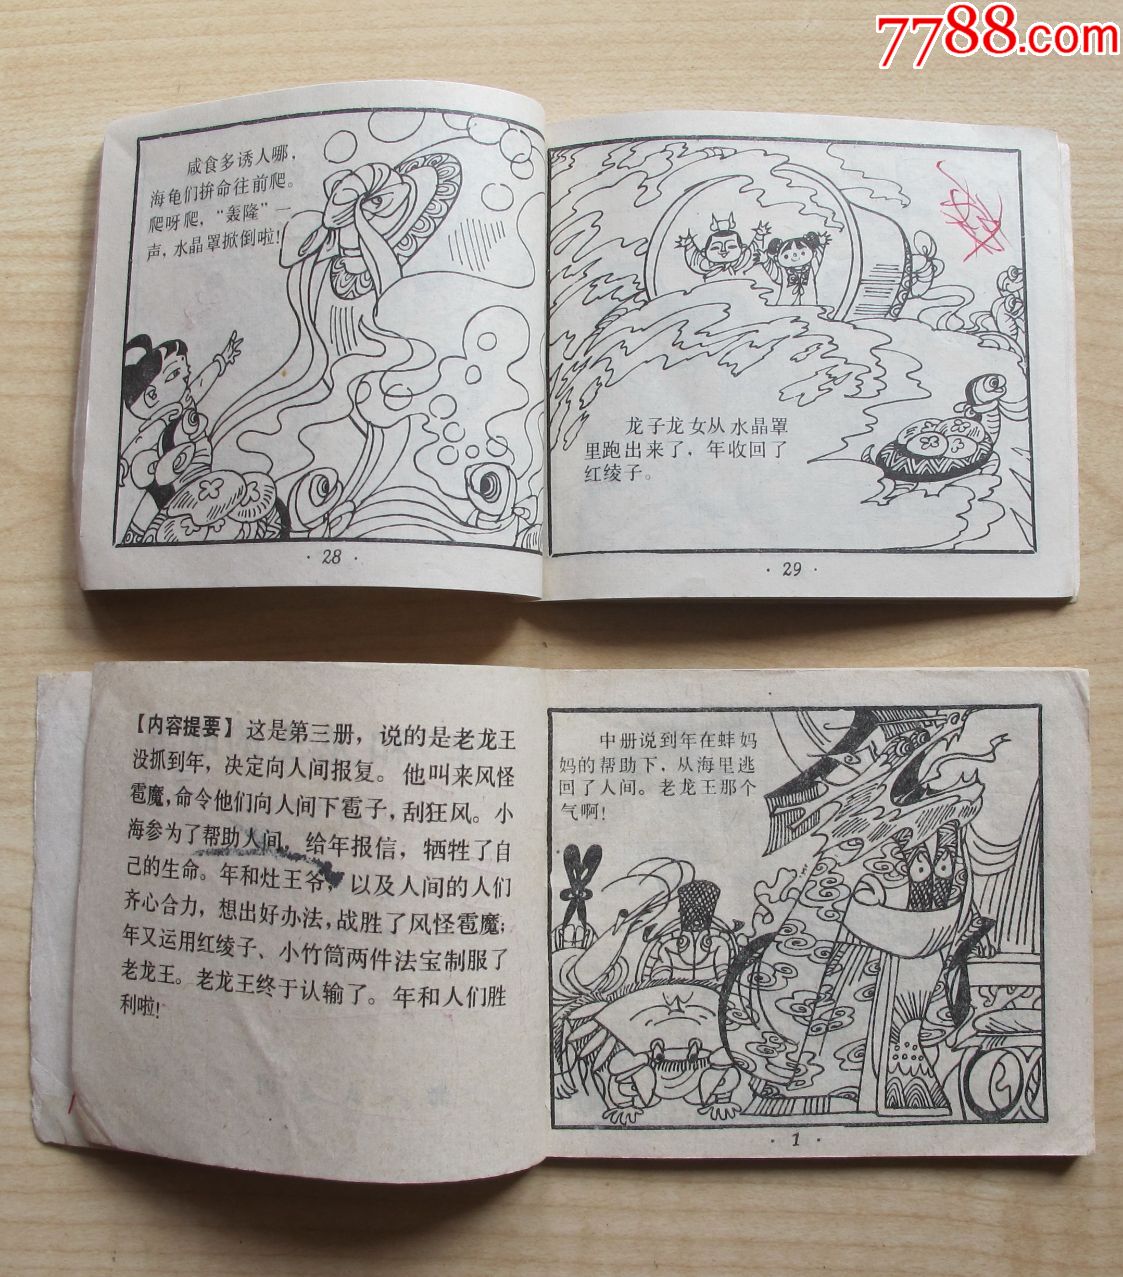 7788.com
咸食多诱人哪，
海龟们拚命往前爬。
爬呀爬，“轰隆”一
声，水晶罩掀倒啦！
· 28 ·
龙子龙女从水晶罩
里跑出来了，年收回了
红绫子。
· 29 ·
【内容提要】这是第三册，说的是老龙王
没抓到年，决定向人间报复。他叫来风怪
雹魔，命令他们向人间下雹子，刮狂风。小
海参为了帮助人间，给年报信，牺牲了自
己的生命。年和灶王爷，以及人间的人们
齐心合力，想出好办法，战胜了风怪雹魔；
年又运用红绫子、小竹筒两件法宝制服了
老龙王。老龙王终于认输了。年和人们胜
利啦！
中册说到年在蚌妈
妈的帮助下，从海里逃
回了人间。老龙王那个
气啊！
· 1 ·